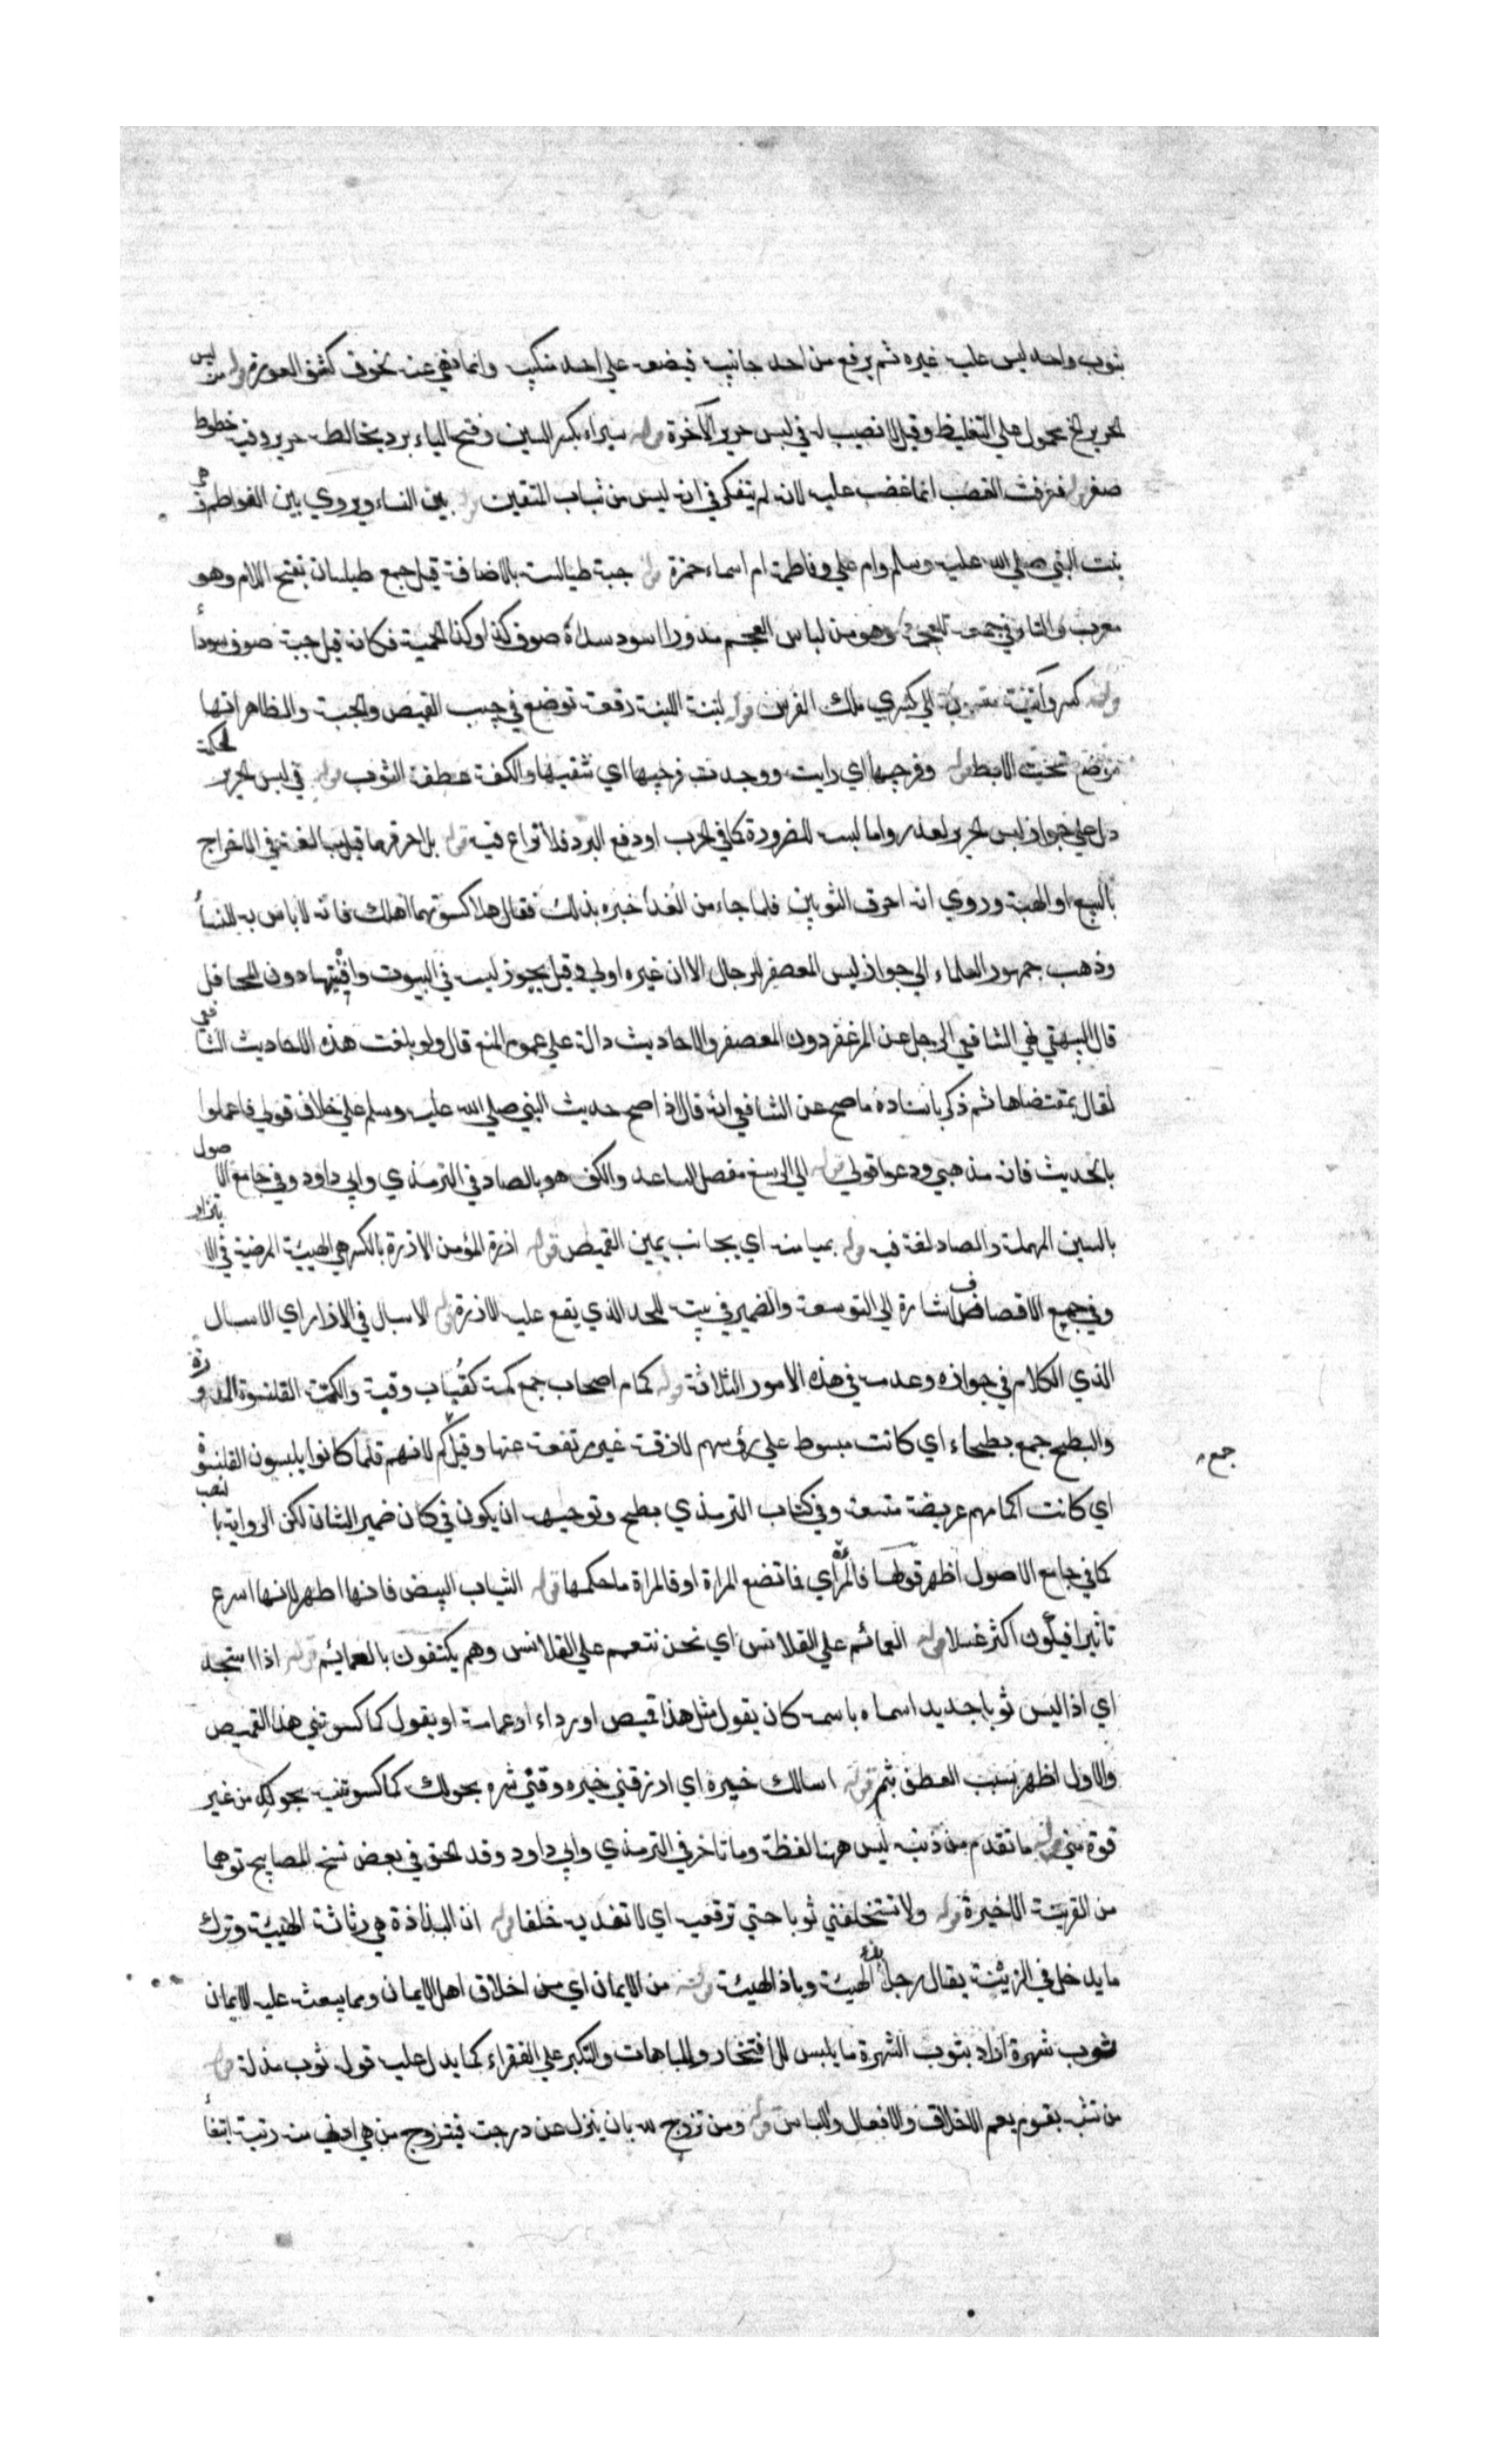 بثوب واحد ليس عليه غيره ثم يرفع من احد جانبيه فيضعه علي احد منكبيه وانما نهي عنه لخوف كشف العورة قوله من لبس
الحرير الخ محمول علي التغليظ وقيل لا نصيب له في لبس حرير الآخرة قوله سيراء بكسر السين وفتح الياء برد يخالطه حرير وفيه خطوط
صفر قوله فعرفت الغضب انما غضب عليه لانه لم يتفكر في انه ليس من ثياب المتقين قوله بين النساء ويروي بين الفواطم هي
بنت النبي صلي الله عليه وسلم وام علي وفاطمة ام اسماء حمزة قوله جبة طيالسة بالاضافة قيل جمع طيلسان بفتح اللام وهو
معرب والتاء في جمعه للعجمة وهو من لباس العجم مدور اسود سداه صوف كذا وكذا لحمته فكانه قيل جبة صوف سوداء
قوله كسروانية منسوبة الي كسري ملك الفرس قوله لبنة اللبنة رقعة توضع في جيب القميص والجبة والظاهر انها
توضع تحت الابط قوله وفرجيها اي رايت ووجدت فرجيها اي شقيها والكفة عطفة الثوب قوله في لبس الحرير لحكة
دل علي جواز لبس الحرير لعذر واما لبسه للضرورة كما في الحرب او دفع البرد فلا نزاع فيه قوله بل احرقهما قيل مبالغة في الاخراج
بالبيع او الهبة وروي انه احرق الثوبين فلما جاء من الغد اخبره بذلك فقال هلا كسوتهما اهلك فانه لا باس به للنساء
وذهب جمهور العلماء الي جواز لبس المعصفر للرجال الا ان غيره اولي وقيل يجوز لبسه في البيوت وافنيتها دون المحافل
قال البيهقي نهي الشافعي الرجل عن المزعفر دون المعصفر والاحاديث دالة علي عموم المنع قال ولو بلغت هذه الاحاديث الشافعي
لقال بمقتضاها ثم ذكر باسناده ما صح عن الشافعي انه قال اذا صح حديث النبي صلي الله عليه وسلم علي خلاف قولي فاعملوا
بالحديث فانه مذهبي ودعوا قولي قوله الي الرسغ مفصل الساعد والكف هو بالصاد في الترمذي وابي داود وفي جامع الاصول
بالسين المهملة والصاد لغة فيه قوله بميامنه اي بجانب يمين القميص قوله ازرة المؤمن الازرة بالكسر هي الهيئة المرضية في الاتزار
وفي جميع الاقصاف اشارة الي التوسعة والضمير في بينه للحد الذي يقع عليه الازرة قوله الاسبال في الازار اي الاسبال
الذي الكلام في جوازه وعدمه في هذه الامور الثلاثة قوله كمام اصحاب جمع كمة كقباب وقبة والكمة القلنسوة المدورة
والبطح جمع بطحاء اي كانت مبسوطة علي رؤسهم لازقة غير مرتفعة عنها وقيل جمع كم لانهم قلما كانوا يلبسون القلنسوة
اي كانت اكمامهم عريضة متسعة وفي كتاب الترمذي بطح وتوجيهه ان يكون في كان ضمير الشان لكن الرواية بالنصب
كما في جامع الاصول اظهر قولها فالمراة اي فما تضع المراة او فالمراة ما حكمها قوله الثياب البيض فانها اطهر لانها اسرع
تاثيرا فيكون اكثر غسلا قوله العمائم علي القلانس اي نحن نتعمم علي القلانس وهم يكتفون بالعمايم قوله اذا استجد
اي اذا لبس ثوبا جديدا سماه باسمه كان يقول مثل هذا قميص او رداء او عمامة او يقول كما كسوتني هذا القميص
والاول اظهر بسبب العطف بثم قوله اسالك خيره اي ارزقني خيره وقني شره بحولك كما كسوتنيه بحولك من غير
قوة مني قوله ما تقدم من ذنبه ليس ههنا لفظة وما تاخر في الترمذي وابي داود وقد الحق في بعض نسخ المصابيح توهما
من القرينة الاخيرة قوله ولا تستخلفني ثوبا حتي ترقعيه اي لا تعديه خلقا قوله ان البذاذة هي رثاثة الهيئة وترك
ما يدخل في الزينة يقال رجل بذ الهيئة وباذ الهيئة قوله من الايمان اي من اخلاق اهل الايمان ومما يبعث عليه الايمان
ثوب شهرة اراد بثوب الشهرة ما يلبس للافتخار والمباهات والتكبر علي الفقراء كما يدل عليه قوله ثوب مذلة قوله
من تشبه بقوم يعم الاخلاق والافعال واللباس قوله ومن تزوج لله بان ينزل عن درجته فيتزوج من هي ادني منه رتبة ابتغاء